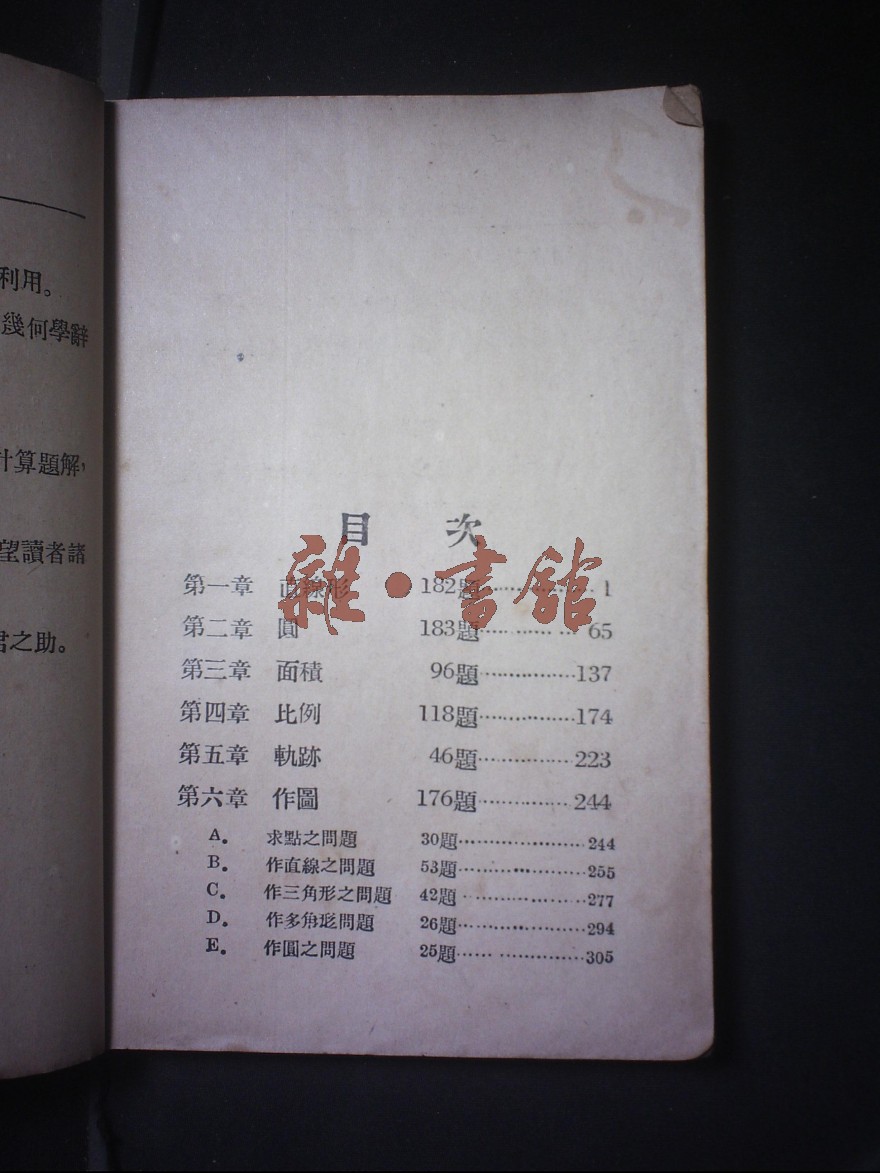 利用。
幾何學辭
計算題解，
望讀者諸
君之助。
目 次
第一章 直線形 182題 1
第二章 圓 183題 65
第三章 面積 96題 137
第四章 比例 118題 174
第五章 軌跡 46題 223
第六章 作圖 176題 244
A. 求點之問題 30題 244
B. 作直線之問題 53題 255
C. 作三角形之問題 42題 277
D. 作多角形問題 26題 294
E. 作圓之問題 25題 305
雜·書館